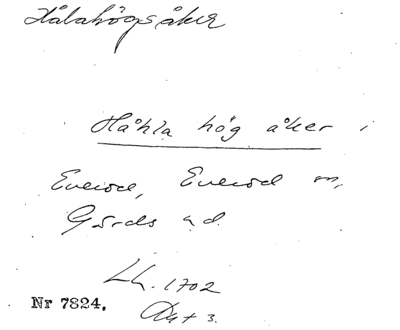 Hålahögsåker
Håhla hög åker i
Everöd, Everöd sn,
Gärds hd.
Lh. 1702
Akt 3.
Nr 7824.